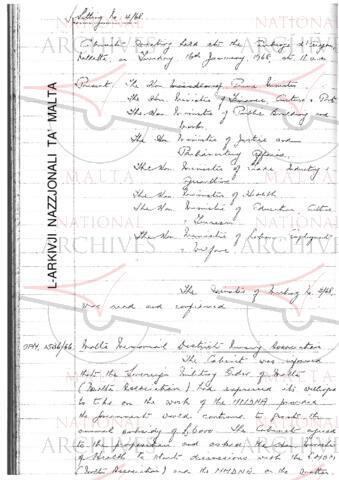 Sitting No. 4/68.
Cabinet Meeting held at the Auberge d'Aragon
Valletta, on Tuesday 16th January, 1968, at 11 a.m.
Present: The Hon. Prime Minister
The Hon. Minister of Finance, Customs & Port
The Hon. Minister of Public Building and
Works.
The Hon. Minister of Justice and
Parliamentary Affairs.
The Hon. Minister of Trade, Industry &
Agriculture
The Hon. Minister of Health
The Hon. Minister of Education, Culture
& Tourism
The Hon. Minister of Labour, Employment
& Welfare
The Minutes of Meeting No. /68,
was read and confirmed
OPM. /66. Malta Memorial District Nursing Association
The Cabinet was informed
that the Sovereign Military Order of Malta
(Malta Association) had expressed its willingness
to take on the work of the MMDNA provided
the Government would continue to grant the
annual subsidy of £6000. The Cabinet agreed
to the proposal and asked the Hon. Minister
of Health to start discussions with the SMOM
(Malta Association) and the MMDNA on the matter.
L-ARKIVJI NAZZJONALI TA' MALTA
NATIONAL
ARCHIVES
MALTA
NATIONAL
ARCHIVES
MALTA
NATIONAL
ARCHIVES